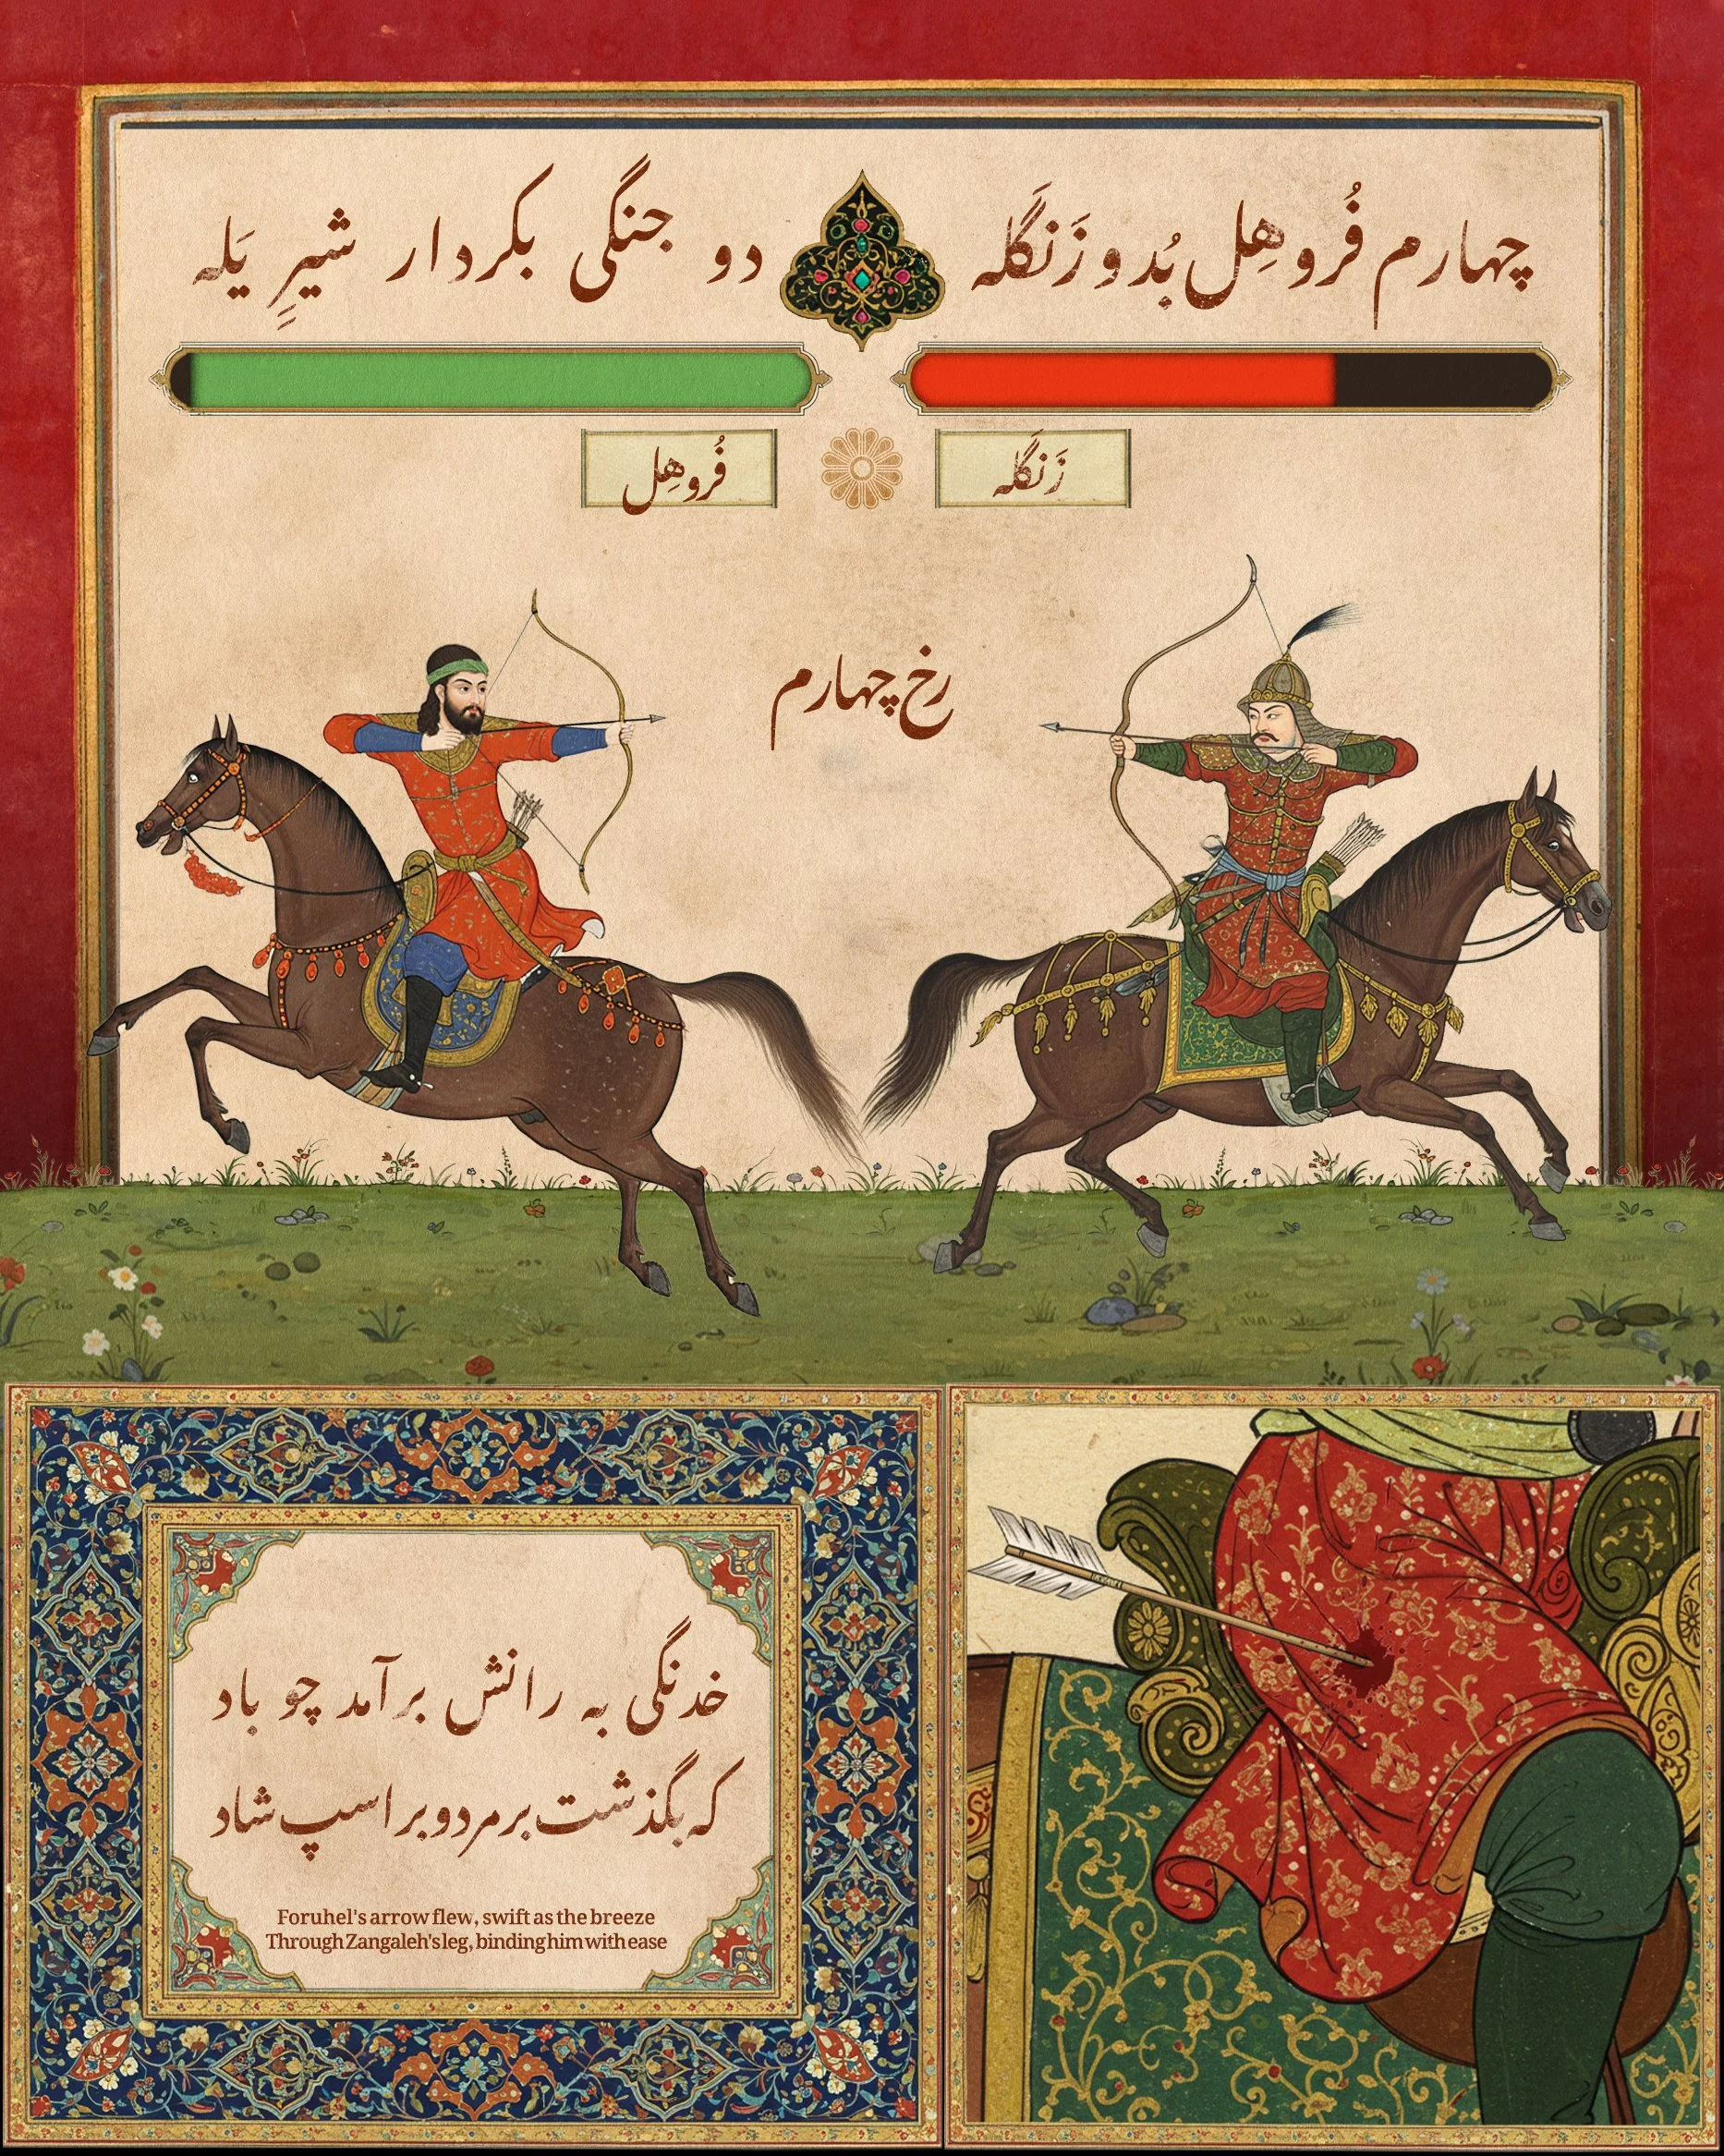 چهارم فُروهِل بُد و زَنگَله
دو جنگی بکردار شیرِ یَله
زَنگَله
فُروهِل
رخ چهارم
خدنگی به رانش برآمد چو باد
که بگذشت بر مرد و بر اسپ شاد
Foruhel's arrow flew, swift as the breeze
Through Zangaleh's leg, binding him with ease